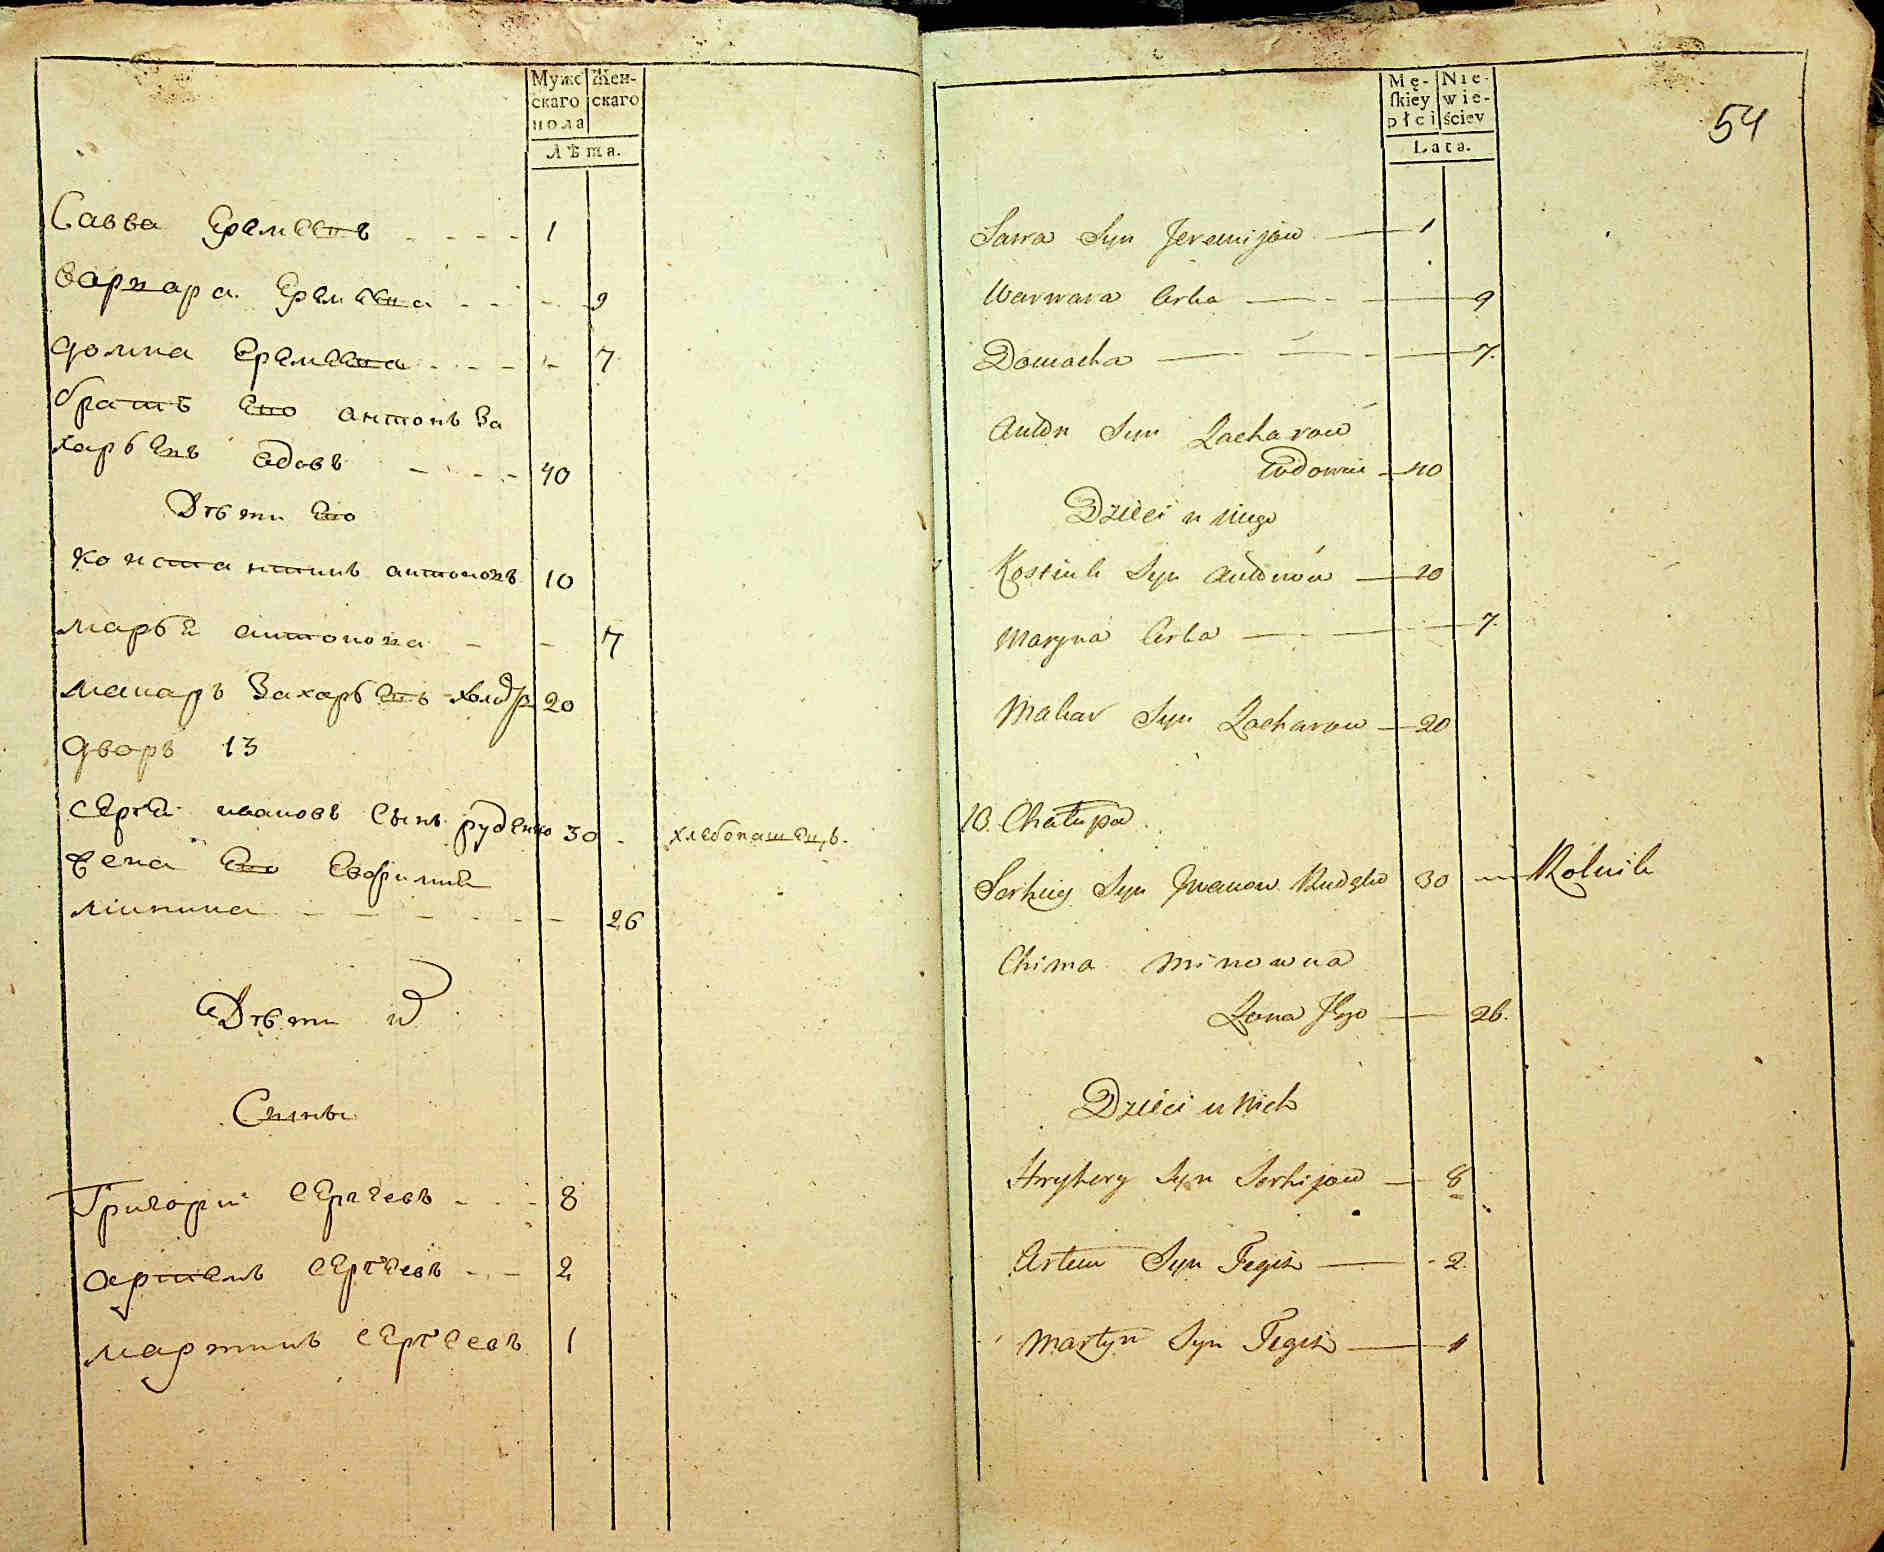 Муже Жен-
скаго скаго
пола
Лѣта.
Савва Еремеевъ 1
варвара Еремеевна 9
домна Еремеевна 7
братъ Его антонъ За
харьевъ вдовъ 40
Дѣти Его
константинъ антоновъ 10
марья антонова 7
макаръ Захарьевъ холо 20
дворъ 13
сергѣй ивановъ сынъ руденко 30 хлебопашецъ.
жена Его Евфимия
минина 26
Дѣти их
Сыны
Григорий Сергеевъ 8
артемъ Сергеевъ 2
мартинъ Сергеевъ 1
54
Mę- Nie-
skiey wie-
płci ściey
Lata.
Sawa Syn Jeremijow 1
Warwara Corka 9
Domacha 7.
Anton Syn Zacharow
Wdowiec 40
Dzieci u niego
Kostiuk Syn Antonow 10
Maryna Corka 7.
Makar Syn Zacharow 20
13. Chałupa
Serhiey Syn Iwanow Rudęko 30 Rolnik
Chima Minowna
Zona Jego 26.
Dzieci u Nich
Hryhory Syn Serhijow 8
Artem Syn Tegiż 2.
Martyn Syn Tegiż 1